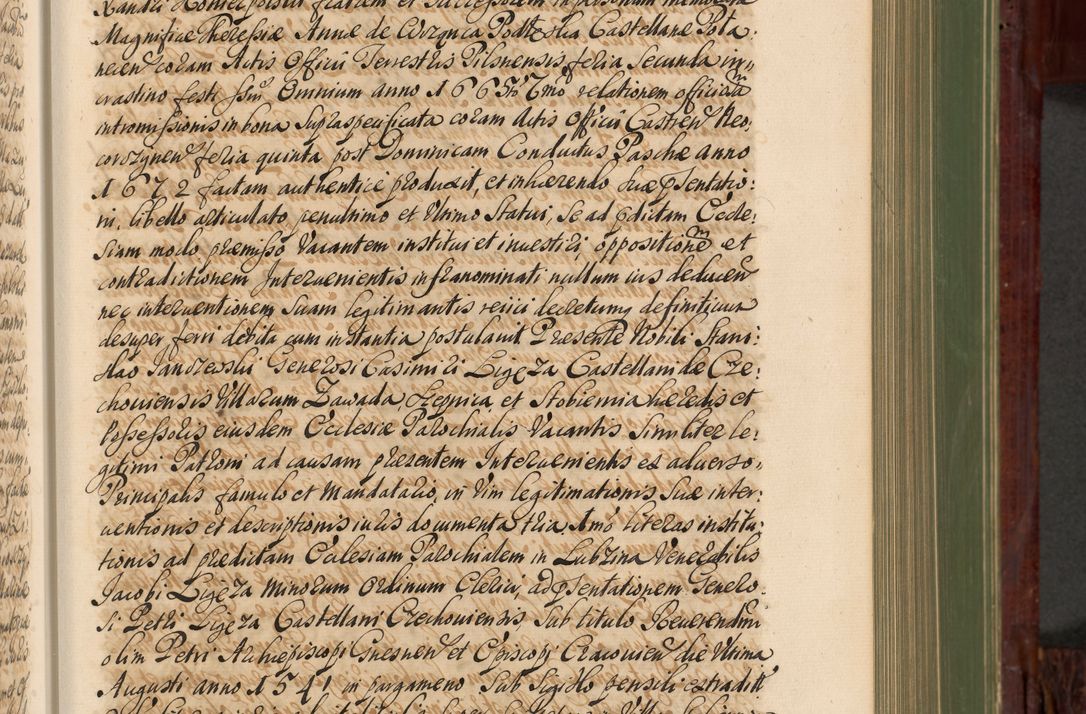 Magnificæ Theresiæ Annæ de Worznica Podleska Castellanæ Pola:
necen coram Actis Officii Terrestris Pilsnensis feria Secunda in
crastino festi Omnium anno 1665 relationem officialem
intromissionis in bona supraspecificata coram Actis Officii Castren Neo,
corozynen feria quinta post Dominicam Conductus Paschæ anno
1672 factam authentice produxit, et inhærendo suæ pñsentatio:
ni, libello articulato, penultimo et Ultimo Statui, se ad pdictam Eccle:
siam modo præmisso Vacantem institui et investiri, oppositionē et
contradictionem Intervenientis infranominati nullum ius deducen
nec interventionem suam legitimantis reiici decretumq definitivum
desuper ferri debita cum instantia postulavit Præsente Nobili Stani:
slao Jandreski Generosi Casimiri Ligęza Castellanidæ Cze:
chouiensis Villarum Zawada, Stępnica et Stobiernia hæredis et
Possessoris eiusdem Ecclesiæ Parochialis Vacantis Similiter le:
gitimi Patroni ad causam præsentem Intervenientis ex adverso,
Principalis famulo et Mandatario, in Vim legitimationis suæ inter:
ventionis et descriptionis iuris documenta tria, Imo literas institu:
tionis ad prædictam Ecclesiam Parochialem in Lubzina Venerabilis
Jacobi Ligęza Minorum Ordinum Clerici, ad pñsentationem Genero:
si Petri Ligęza Castellani Czechouiensis, Sub titulo Reuerendmi
olim Petri Archiepiscopi Gnesnen et Episcopi Cracouien die Ultima
Augusti anno 1541 in pargameno Sub Sigillo pensili extradit